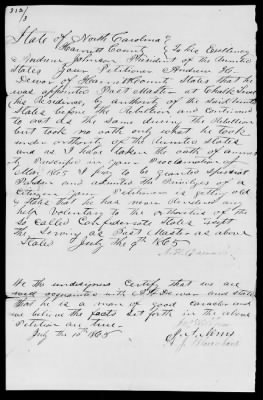 State of North Carolina }
Harnett County } To his Excellency
Andrew Johnson President of the United
States your Petitioner Andrew H.
Dewar of Harnett County States that he
was appointed Post Master at Chalk Level
his Residence, by authority of the said United
States before the Rebellion and continued
to act as the same during the Rebellion
but took no oath only what he took
under authority of the United States
and as I have taken the oath of amnes
ty Prescribed in your Proclamation of
May 1865 I pray to be granted Special
Pardon and admitted the Privileges of a
Citizen your Petitioner is getting old
& States that he has never rendered any
help Voluntary to the authorities of the
So Called Confederate States except
the Serving as Post Master as above
Stated July the 9th 1865
We the undersigned Certify that we are
well acquainted with A H Dewar and state
that he is a man of good caracter and
we believe the facts set forth in the above
Petition are true
July the 10th 1865